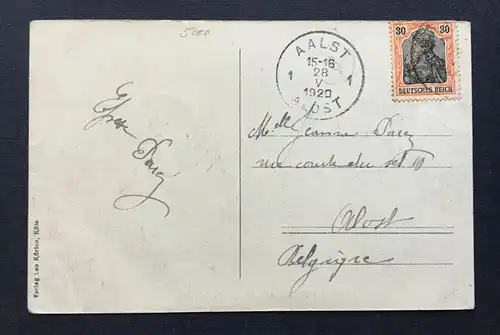 5000
AALST
15-16
1 28 1
V
1920
ALOST
30 30
DEUTSCHES REICH
Melle Jeanne Darcy
rue courte du sel 15
Alost
Belgique
Darcy
Verlag Leo Kürten, Köln